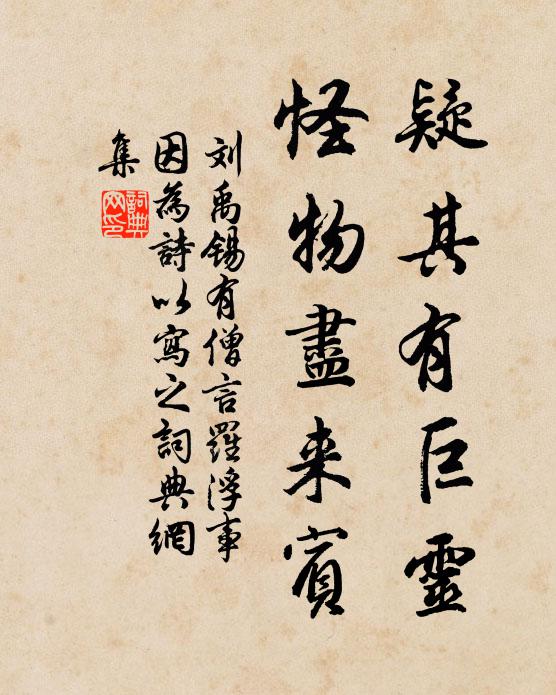 疑其有巨靈
怪物盡来賓
刘禹锡有僧言羅浮事
因為詩以寫之詞典網
集
詞典網印